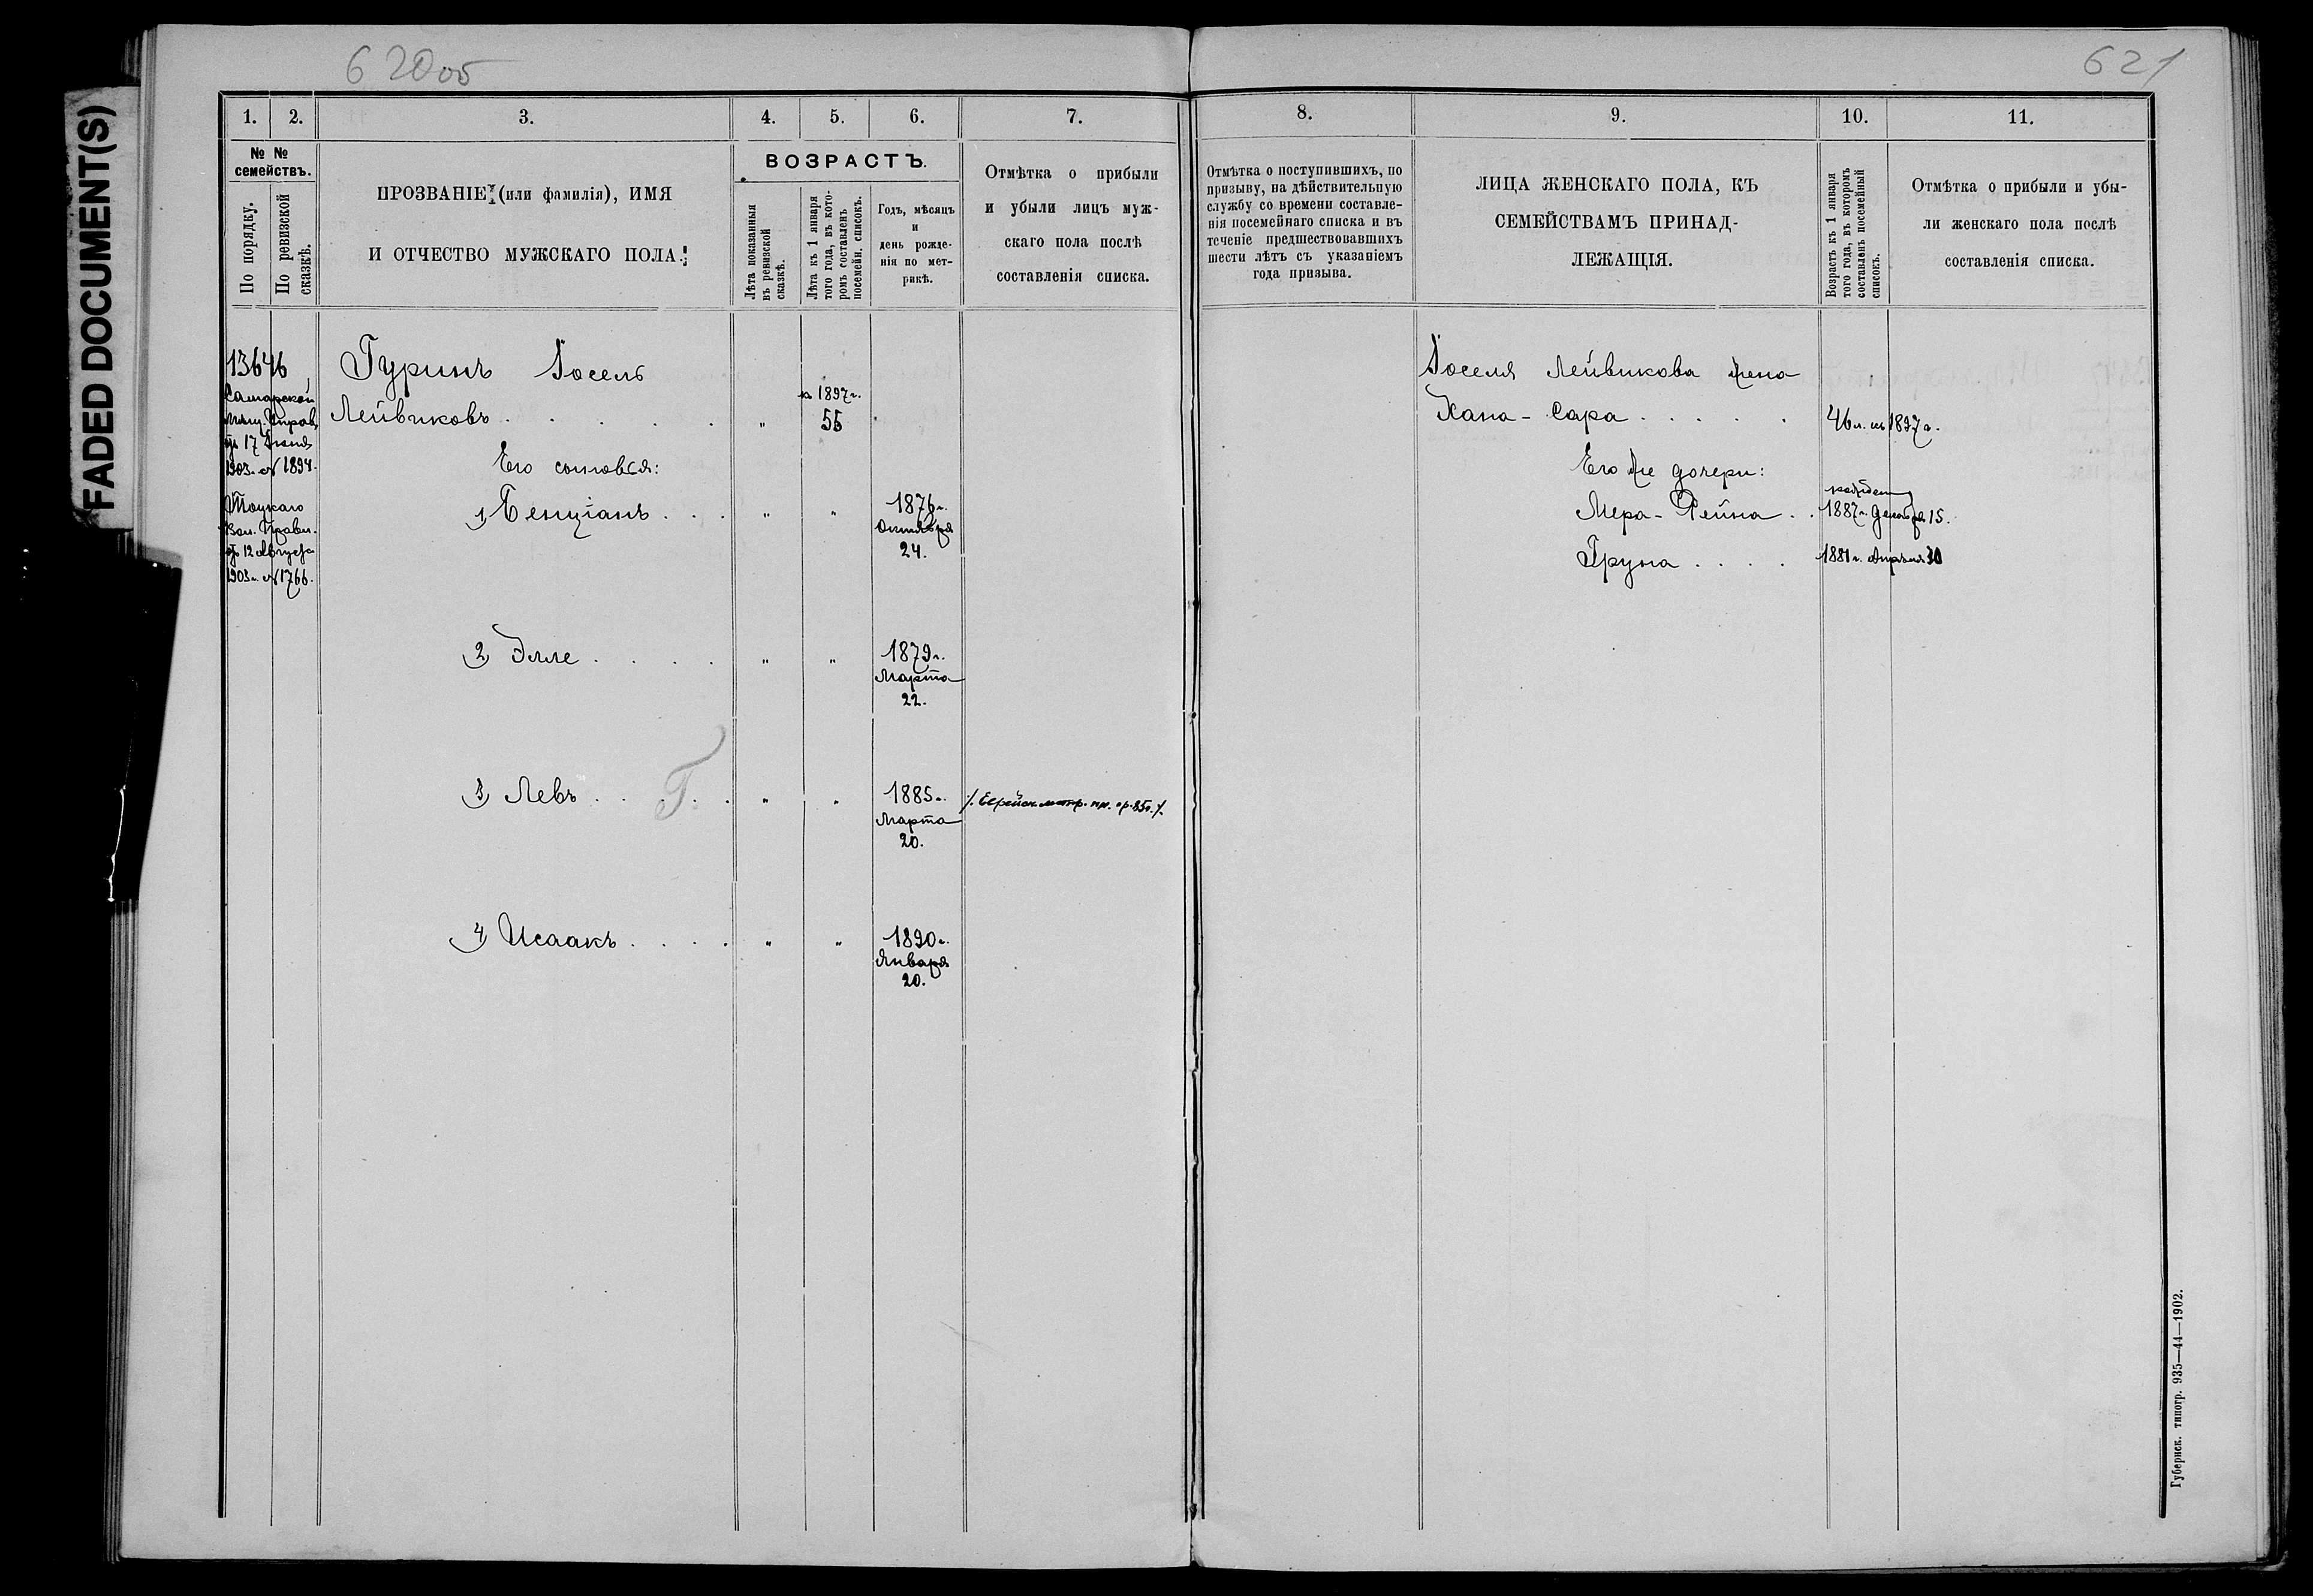 FADED DOCUMENT(S)
620об
621
1. 2. 3. 4. 5. 6. 7. 8. 9. 10. 11.
№ №
семействъ.
По порядку.
По ревизской
сказкѣ.
ПРОЗВАНІЕ (или фамилія), ИМЯ
И ОТЧЕСТВО МУЖСКАГО ПОЛА.
ВОЗРАСТЪ.
Лѣта показанныя
въ ревизской
сказкѣ.
Лѣта къ 1 января
того года, въ кото-
ромъ составленъ
посемейн. списокъ.
Годъ, мѣсяцъ
и
день рожде-
нія по мет-
рикѣ.
Отмѣтка о прибыли
и убыли лицъ муж-
скаго пола послѣ
составленія списка.
Отмѣтка о поступившихъ, по
призыву, на дѣйствительную
службу со времени составле-
нія посемейнаго списка и въ
теченіе предшествовавшихъ
шести лѣтъ съ указаніемъ
года призыва.
ЛИЦА ЖЕНСКАГО ПОЛА, КЪ
СЕМЕЙСТВАМЪ ПРИНАД-
ЛЕЖАЩІЯ.
Возрастъ къ 1 января
того года, въ которомъ
составленъ посемейный
списокъ.
Отмѣтка о прибыли и убы-
ли женскаго пола послѣ
составленія списка.
13646
Самарской
мѣщ. Управы
отъ 17 Іюня
1903 г. № 1894.
Волн. Правл.
отъ 12 Августа
1903 г. № 1766.
Гуринъ Іосель
Лейвиковъ . . . . . „ къ 1897 г. 55
Его сыновья:
1, Бенціанъ . . . „ „ 1876 г.
Октября
24.
2, Элле . . . . „ „ 1879 г.
Марта
22.
3, Левъ . . Г. . . „ „ 1885 г.
Марта
20.
4, Исаакъ . . . . „ „ 1890 г.
Января
20.
Іоселя Лейвикова жена
Хана-Сара . . . . . 46 л. къ 1897 г.
Его же дочери:
Мера-Рейна . . 1887 г. Декабря 15.
Груня . . . . 1881 г. Апрѣля 30
Губернск. типогр. 935—44—1902.